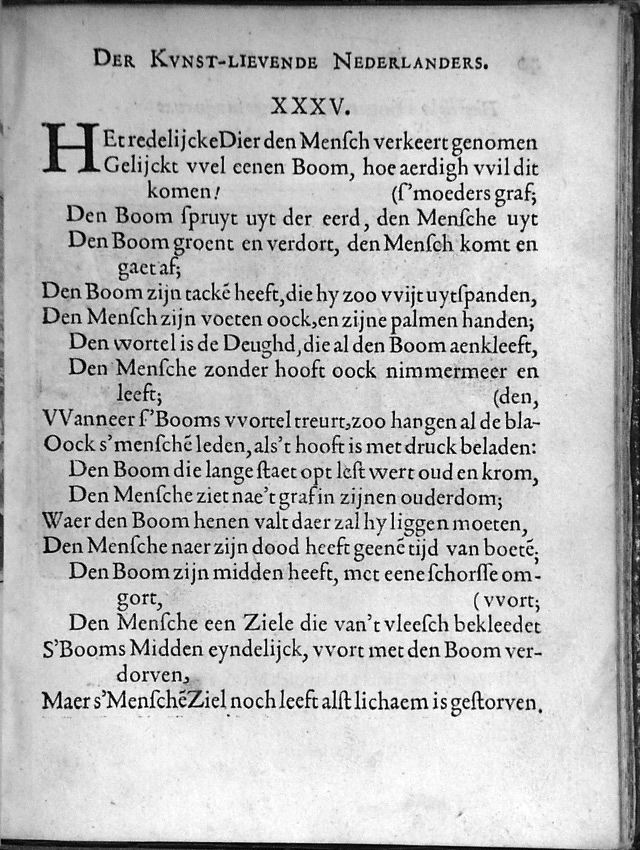 DER KVNST-LIEVENDE NEDERLANDERS.
XXXV.
HEt redelijcke Dier den Menſch verkeert genomen
Gelijckt vvel eenen Boom, hoe aerdigh vvil dit
komen! (ſ'moeders graf;
Den Boom ſpruyt uyt der eerd, den Menſche uyt
Den Boom groent en verdort, den Menſch komt en
gaet af;
Den Boom zijn tackē heeft, die hy zoo vvijt uytſpanden,
Den Menſch zijn voeten oock, en zijne palmen handen;
Den wortel is de Deughd, die al den Boom aenkleeft,
Den Menſche zonder hooft oock nimmermeer en
leeft; (den,
VVanneer ſ'Booms vvortel treurt, zoo hangen al de bla-
Oock s'menſchē leden, als't hooft is met druck beladen:
Den Boom die lange ſtaet opt leſt wert oud en krom,
Den Menſche ziet nae't graf in zijnen ouderdom;
Waer den Boom henen valt daer zal hy liggen moeten,
Den Menſche naer zijn dood heeft geenē tijd van boetē;
Den Boom zijn midden heeft, met eene ſchorſſe om-
gort, (vvort;
Den Menſche een Ziele die van't vleeſch bekleedet
S'Booms Midden eyndelijck, vvort met den Boom ver-
dorven,
Maer s'Menſchē Ziel noch leeft alſt lichaem is geſtorven.